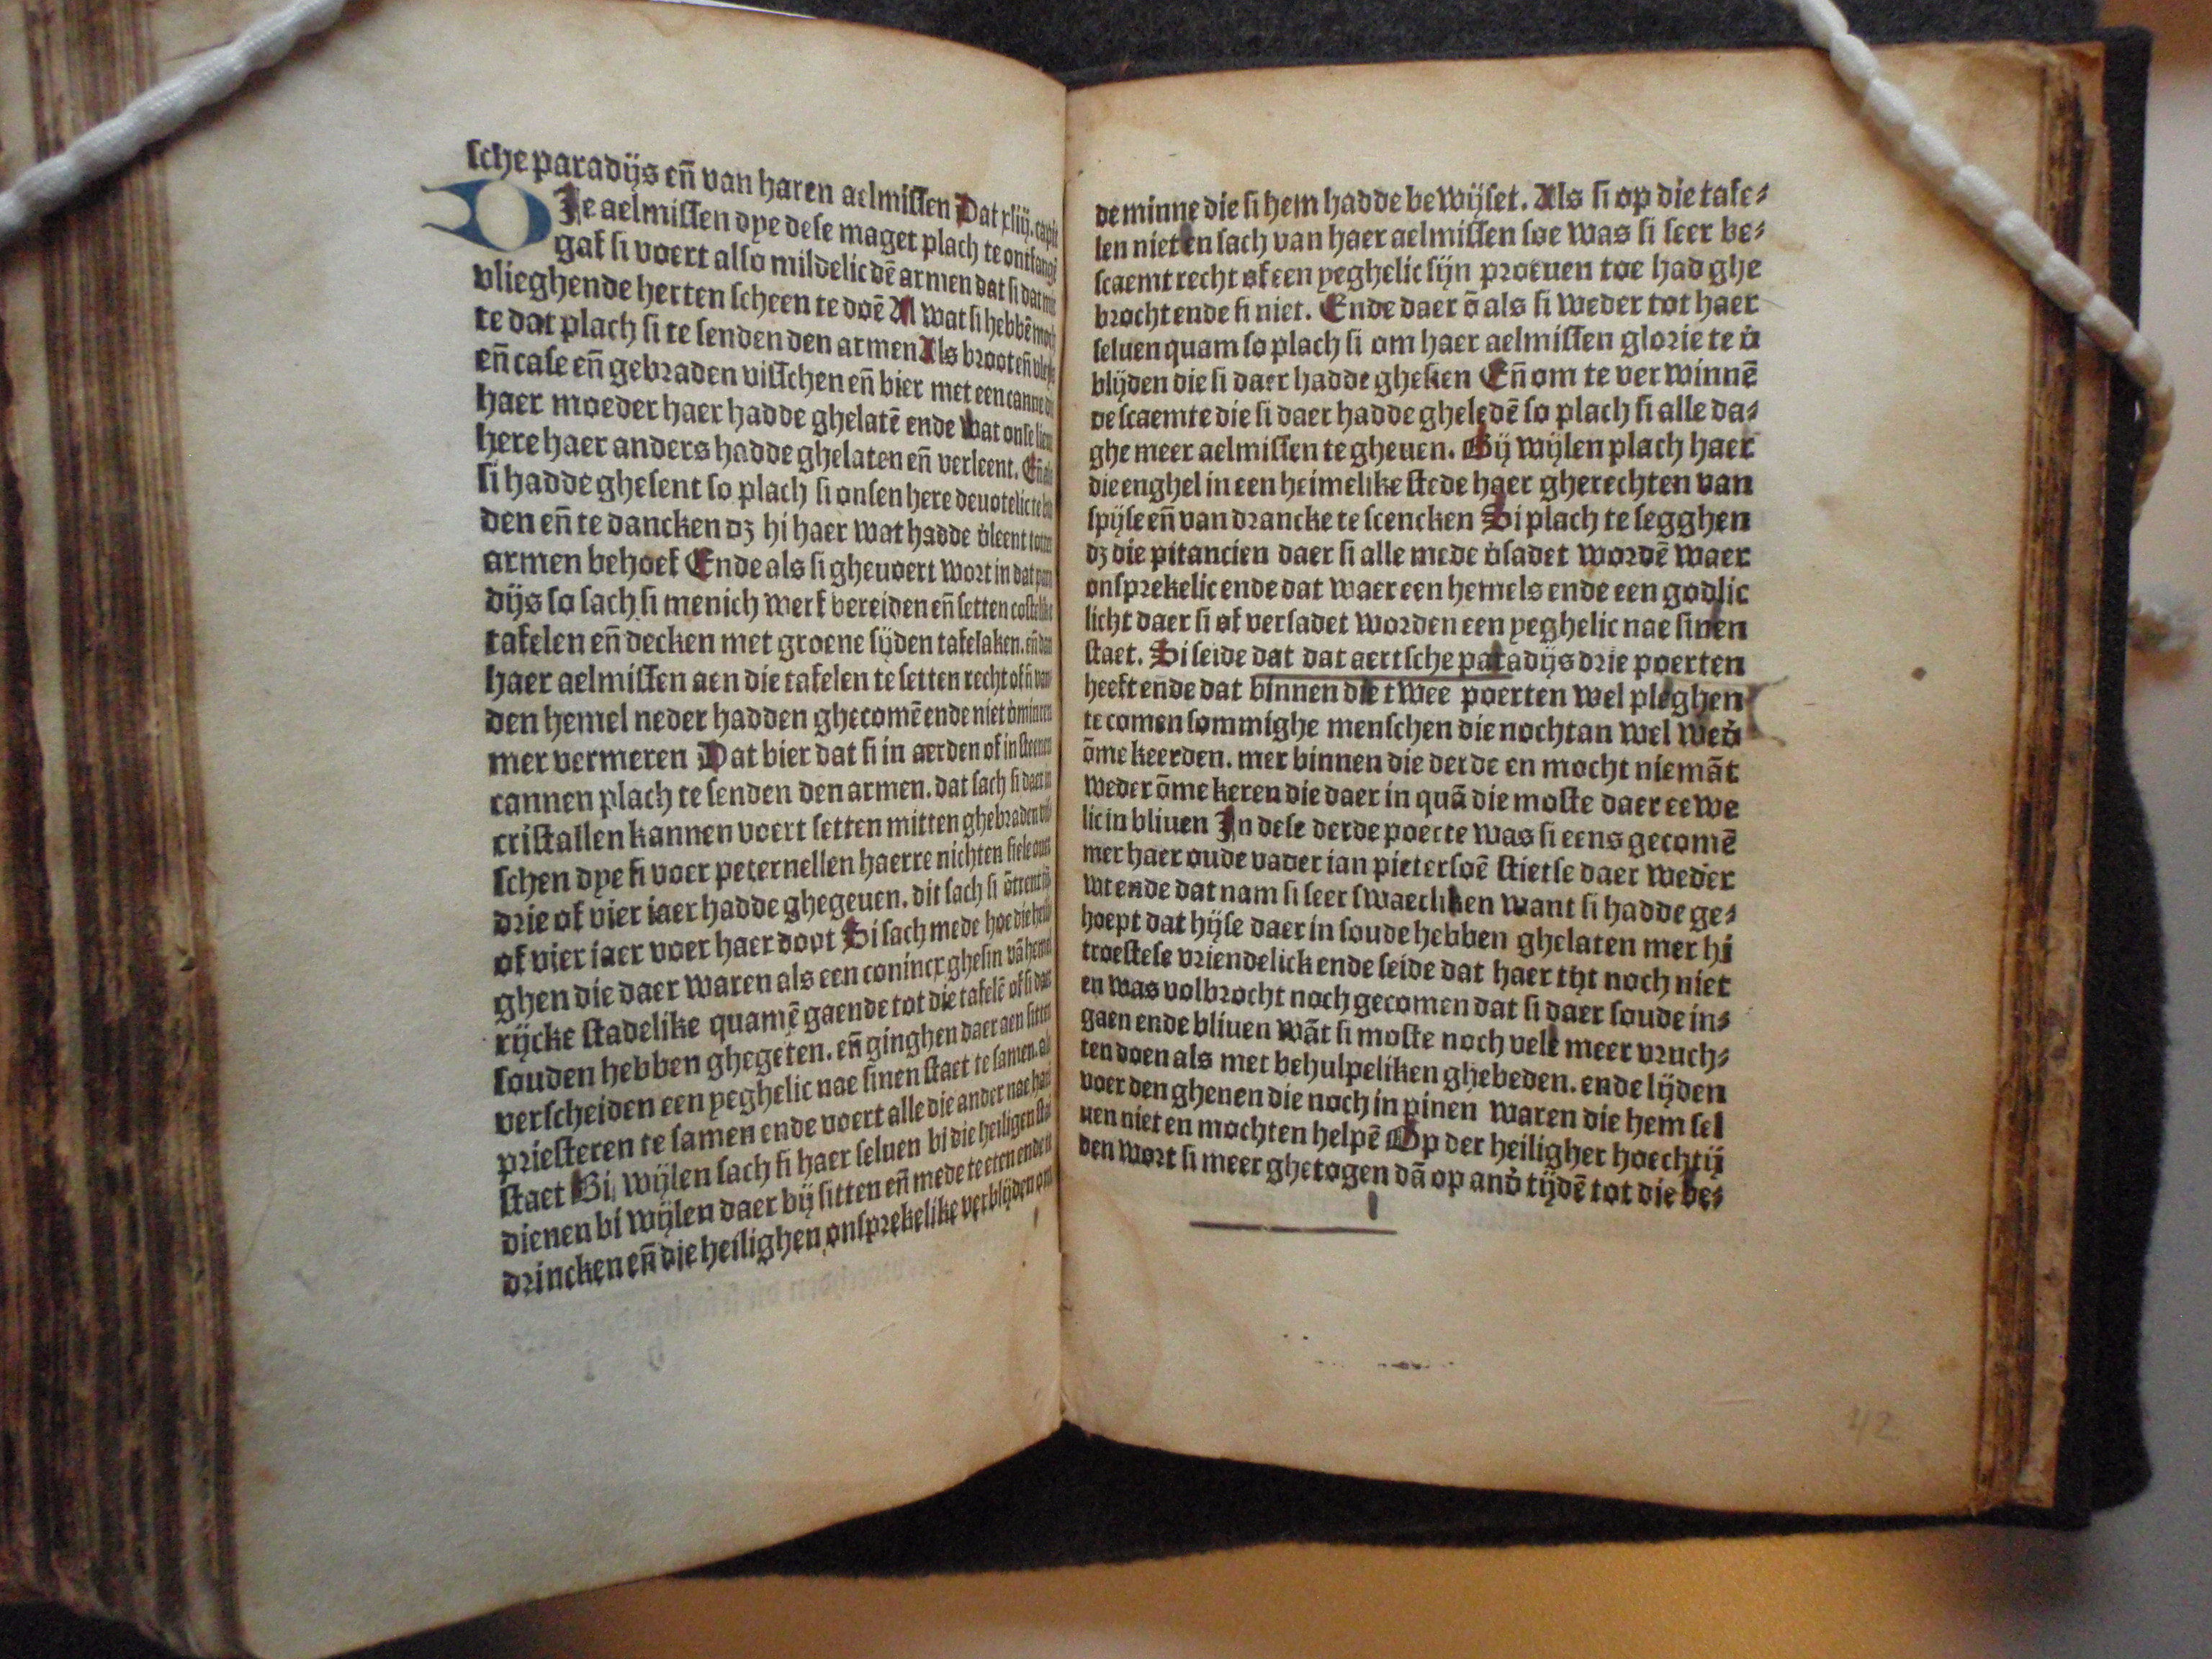 sche paradijs eñ van haren aelmissen Dat xliij. capit
DIe aelmissen dye dese maget plach te ontfangē
gaf si voert also mildelic dē armen dat si dat mit
vlieghende herten scheen te doē Al wat si hebbē moch
te dat plach si te senden den armen Als broot eñ vleys
eñ case eñ gebraden visschen eñ bier met een canne die
haer moeder haer hadde ghelatē ende wat onse lieue
here haer anders hadde ghelaten eñ verleent. Eñ als
si hadde ghesent so plach si onsen here deuotelic te
den eñ te dancken dʒ hi haer wat hadde v̓leent totter
armen behoef Ende als si gheuoert wort in dat para
dijs so sach si menich werf bereiden eñ setten costelike
tafelen eñ decken met groene sijden tafelaken. eñ dan
haer aelmissen aen die tafelen te setten recht of si van
den hemel neder hadden ghecomē ende niet v̓minren
mer vermeren Dat bier dat si in aerden of in steenen
cannen plach te senden den armen. dat sach si daer in
cristallen kannen voert setten mitten ghebraden vis
schen dye si voer peternellen haerre nichten siele
drie of vier iaer hadde ghegeuen. dit sach si ōtrent
of vier iaer voer haer doot Si sach mede hoe die heili
ghen die daer waren als een conincx ghesin vā hemel
rijcke stadelike quamē gaende tot die tafelē of si daer
souden hebben ghegeten. eñ ginghen daer aen sitten
verscheiden een yeghelic nae sinen staet te samen. als
priesteren te samen ende voert alle die ander nae haer
staet Bij wijlen sach si haer seluen bi die heiligen
dienen bi wijlen daer bij sitten eñ mede te eten ende te
drincken eñ die heilighen onsprekelike verblijden om
de minne die si hem hadde bewijset. Als si op die tafe⸗
len niet en sach van haer aelmissen soe was si seer be⸗
scaemt recht of een yeghelic sijn proeuen toe had ghe
brocht ende si niet. Ende daer ō als si weder tot haer
seluen quam so plach si om haer aelmissen glorie te v̓
blijden die si daer hadde ghesien Eñ om te verwinnē
de scaemte die si daer hadde gheledē so plach si alle da⸗
ghe meer aelmissen te gheuen. Bij wijlen plach haer
die enghel in een heimelike stede haer gherechten van
spijse eñ van drancke te scencken Si plach te segghen
dʒ die pitancien daer si alle mede v̓sadet wordē waer
onsprekelic ende dat waer een hemels ende een godlic
licht daer si of versadet worden een yeghelic nae sinen
staet. Si seide dat dat aertsche paradijs drie poerten
heeft ende dat binnen die twee poerten wel pleghen
te comen sommighe menschen die nochtan wel wed̓
ōme keerden. mer binnen die derde en mocht niemāt
weder ōme keren die daer in quā die moste daer eewe
lic in bliuen In dese derde poerte was si eens gecomē
mer haer oude vader ian pietersoē stietse daer weder
wt ende dat nam si seer swaerliken want si hadde ge⸗
hoept dat hijse daer in soude hebben ghelaten mer hi
troestese vriendelick ende seide dat haer tijt noch niet
en was volbrocht noch gecomen dat si daer soude in⸗
gaen ende bliuen wāt si moste noch vele meer vruch⸗
ten doen als met behulpeliken ghebeden. ende lijden
voer den ghenen die noch in pinen waren die hem sel
uen niet en mochten helpē Op der heiligher hoechtij
den wort si meer ghetogen dā op and̓ tijdē tot die be⸗
42